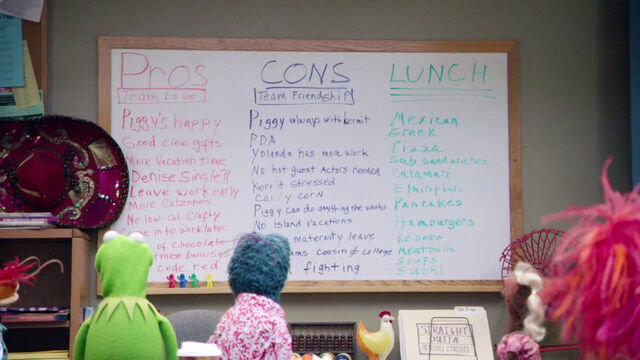 Pros
Team Love
Piggy's happy
Good crew gifts
More vacation time
Denise Single!!
Leave work early
More Calzones
No low-cal Crafty
into work later
of chocolate
code red
CONS
Team Friendship
Piggy always with Kermit
PDA
Yolanda has more work
No hot guest Actors needed
Kermit stressed
Candy corn
Piggy can do anything she wants
No Island Vacations
maternity leave
college
fighting
LUNCH
Mexican
Greek
Pizza
Sub sandwiches
Calamari
Ethiopian
Pancakes
Hamburgers
Kebobs
Meatballs
Soups
Sushi
STRAIGHT
OUTTA